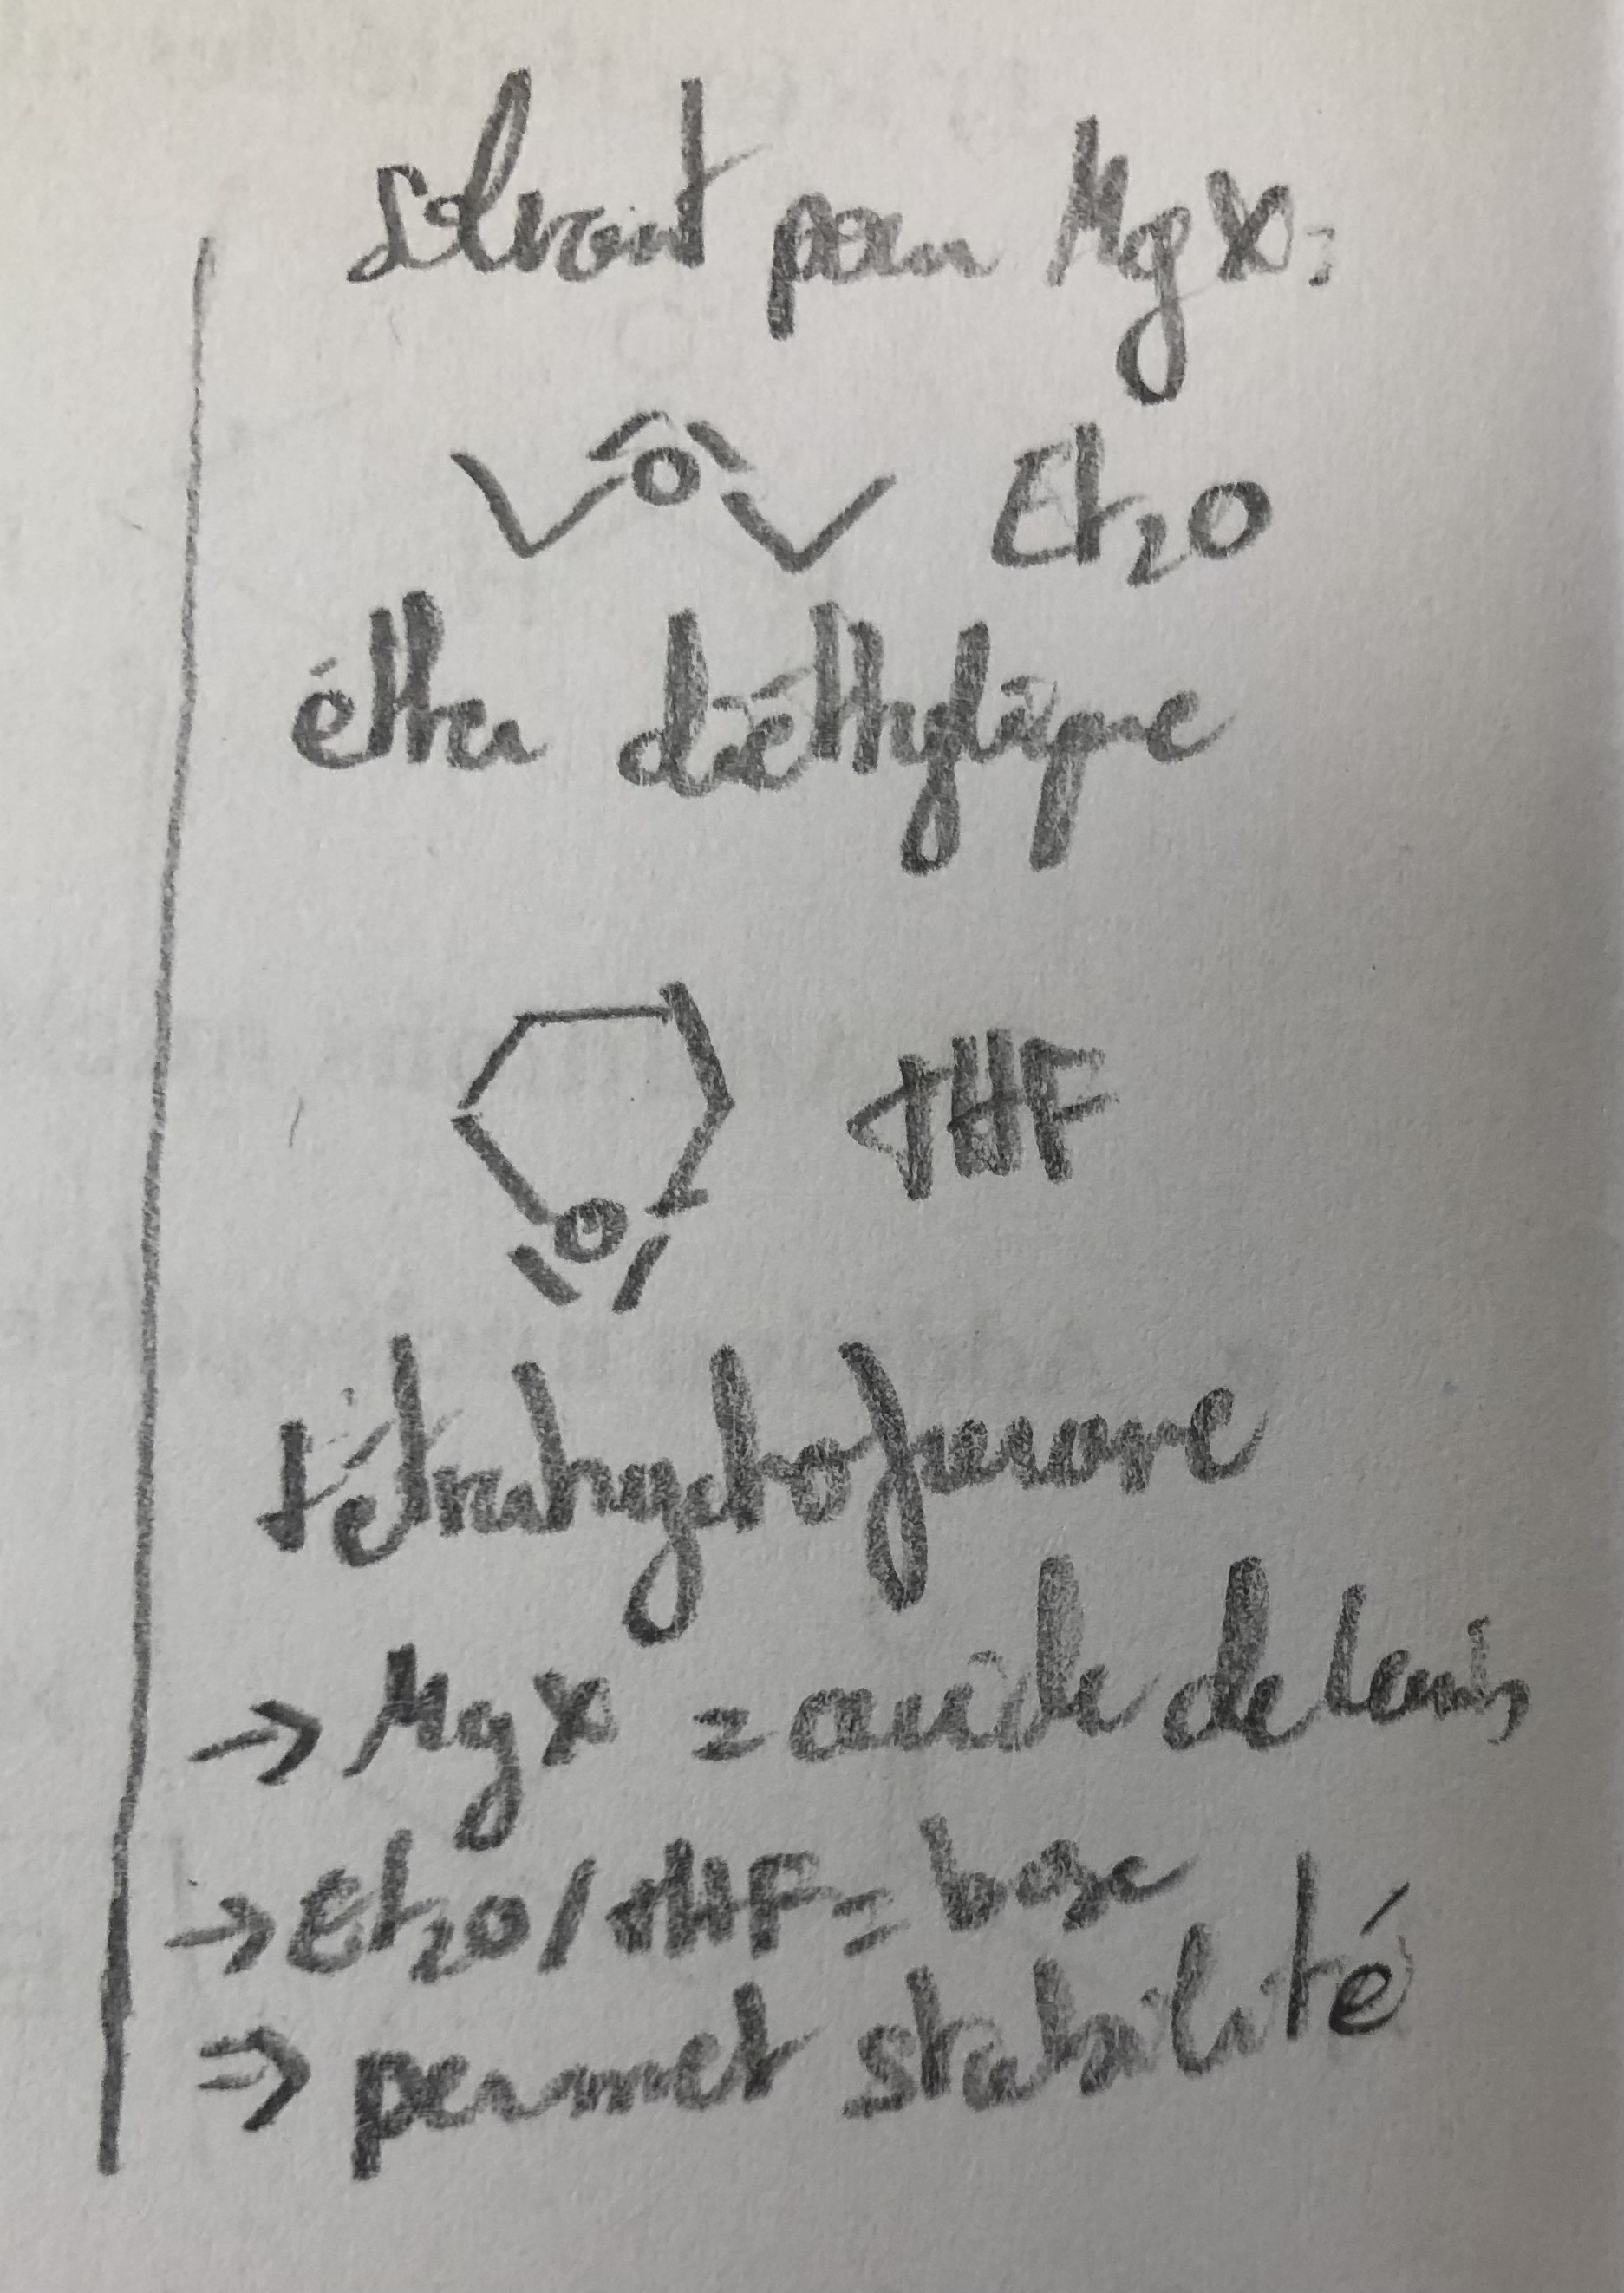 solvant pour MgX:
O Et₂O
éther diéthylique
THF
O
tétrahydrofurane
→ MgX = acide de Lewis
→ Et₂O/THF = base
⇒ permet stabilité